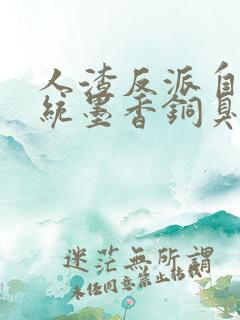 人渣反派自
統墨香銅臭
迷茫無所謂
未任同意禁止轉載